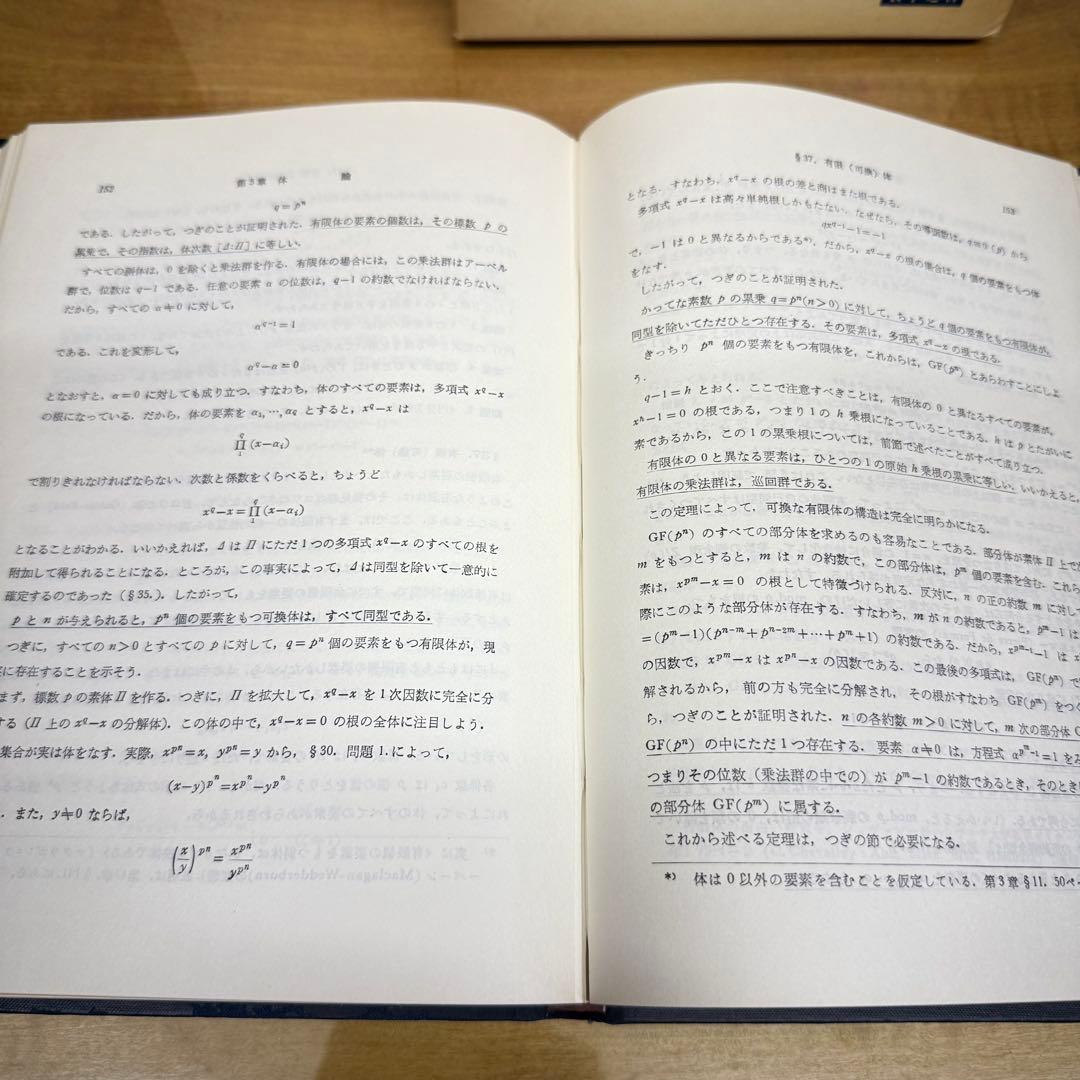 152
第3章 体 論
q=pⁿ
である．したがって，つぎのことが証明された．有限体の要素の個数は，その標数 p の
累乗で，その指数は，体次数 [Δ:Π] に等しい．
すべての斜体は，0 を除くと乗法群を作る．有限体の場合には，この乗法群はアーベル
群で，位数は q−1 である．任意の要素 α の位数は，q−1 の約数でなければならない．
だから，すべての α≠0 に対して，
α^{q−1}=1
である．これを変形して，
α^q−α=0
となおすと，α=0 に対しても成り立つ．すなわち，体のすべての要素は，多項式 x^q−x
の根になっている．だから，体の要素を α₁,…,α_q とすると，x^q−x は
∏_1^q (x−α_i)
で割りきれなければならない．次数と係数をくらべると，ちょうど
x^q−x=∏_1^q (x−α_i)
となることがわかる．いいかえれば，Δ は Π にただ1つの多項式 x^q−x のすべての根を
附加して得られることになる．ところが，この事実によって，Δ は同型を除いて一意的に
確定するのであった (§35.)．したがって，
p と n が与えられると，pⁿ 個の要素をもつ可換体は，すべて同型である．
つぎに，すべての n>0 とすべての p に対して，q=pⁿ 個の要素をもつ有限体が，現
に存在することを示そう．
まず，標数 p の素体 Π を作る．つぎに，Π を拡大して，x^q−x を1次因数に完全に分
する (Π 上の x^q−x の分解体)．この体の中で，x^q−x=0 の根の全体に注目しよう．
集合が実は体をなす．実際，x^{pⁿ}=x, y^{pⁿ}=y から，§30. 問題 1. によって，
(x−y)^{pⁿ}=x^{pⁿ}−y^{pⁿ}
．また，y≠0 ならば，
(x/y)^{pⁿ}=x^{pⁿ}/y^{pⁿ}
§37. 有限（可換）体
153
となる．すなわち，x^q−x の根の差と商はまた根である．
多項式 x^q−x は高々単純根しかもたない．なぜなら，その導函数は，q≡0 (p) から
qx^{q−1}−1=−1
で，−1 は 0 と異なるからである*)．だから，x^q−x の根の集合は，q 個の要素をもつ体
をなす．
したがって，つぎのことが証明された．
かってな素数 p の累乗 q=pⁿ(n>0) に対して，ちょうど q 個の要素をもつ有限体が，
同型を除いてただひとつ存在する．その要素は，多項式 x^q−x の根である．
きっちり pⁿ 個の要素をもつ有限体を，これからは，GF(pⁿ) とあらわすことにしよ
う．
q−1=h とおく．ここで注意すべきことは，有限体の 0 と異なるすべての要素が，
x^h−1=0 の根である，つまり1の h 乗根になっていることである．h は p とたがいに
素であるから，この1の累乗根については，前節で述べたことがすべて成り立つ．
有限体の 0 と異なる要素は，ひとつの1の原始 h 乗根の累乗に等しい．いいかえると，
有限体の乗法群は，巡回群である．
この定理によって，可換な有限体の構造は完全に明らかになる．
GF(pⁿ) のすべての部分体を求めるのも容易なことである．部分体が素体 Π 上で
m をもつとすると，m は n の約数で，この部分体は，p^m 個の要素を含む．これら
素は，x^{p^m}−x=0 の根として特徴づけられる．反対に，n の正の約数 m に対して
際にこのような部分体が存在する．すなわち，m が n の約数であると，p^m−1 は
=(p^m−1)(p^{n−m}+p^{n−2m}+⋯+p^m+1) の約数である．だから，x^{p^m−1}−1 は
の因数で，x^{p^m}−x は x^{pⁿ}−x の因数である．この最後の多項式は，GF(pⁿ) で
解されるから，前の方も完全に分解され，その根がすなわち GF(p^m) をつ
ら，つぎのことが証明された．n の各約数 m>0 に対して，m 次の部分体
GF(pⁿ) の中にただ1つ存在する．要素 α≠0 は，方程式 α^{p^m−1}=1 をみ
つまりその位数（乗法群の中での）が p^m−1 の約数であるとき，そのとき
の部分体 GF(p^m) に属する．
これから述べる定理は，つぎの節で必要になる．
*) 体は 0 以外の要素を含むことを仮定している．第3章 §11. 50ペ